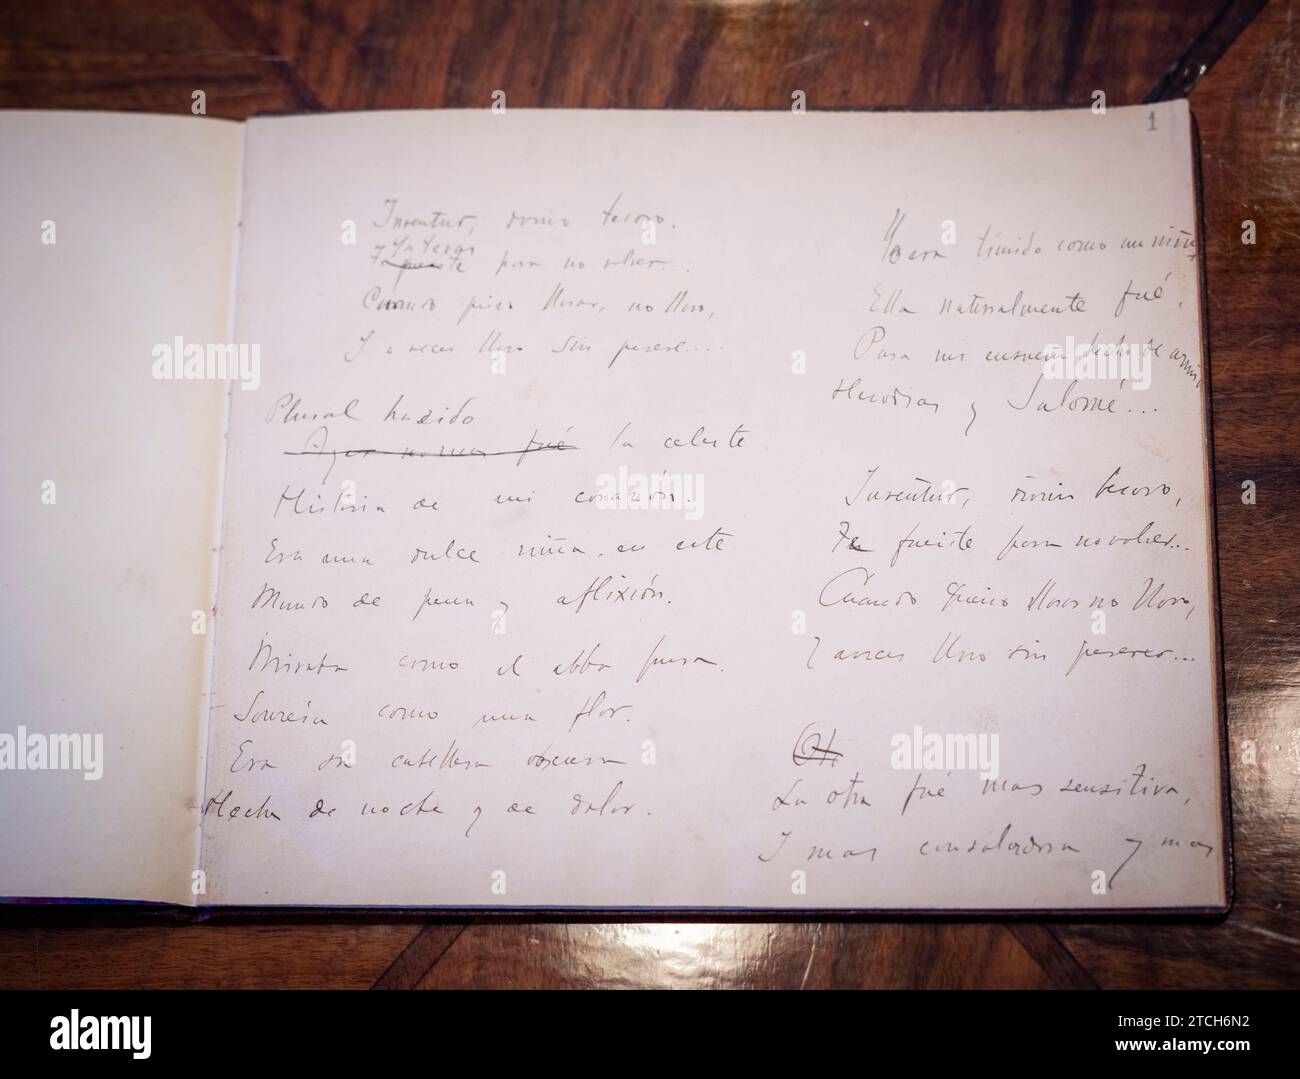 1
Juventud, divino tesoro.
Ya te vas
Ya fuiste para no volver...
Cuando quiero llorar, no lloro,
I a veces lloro sin querer....
Plural ha sido
la celeste
Historia de mi corazón.
Era una dulce niña en este
Mundo de pena y aflixión.
Miraba como el alba pura.
Sonreía como una flor.
Era su cabellera obscura
Hecha de noche y de dolor.
Yo era tímido como un niño
Ella naturalmente fué,
Para mi ensueño hecho de armiño
Herodias y Salomé...
Juventud, divino tesoro,
Te fuiste para no volver...
Cuando quiero llorar no lloro,
I a veces lloro sin querer...
La otra fué mas sensitiva,
I mas consoladora y mas
alamy
Image ID: 2TCH6N2
www.alamy.com